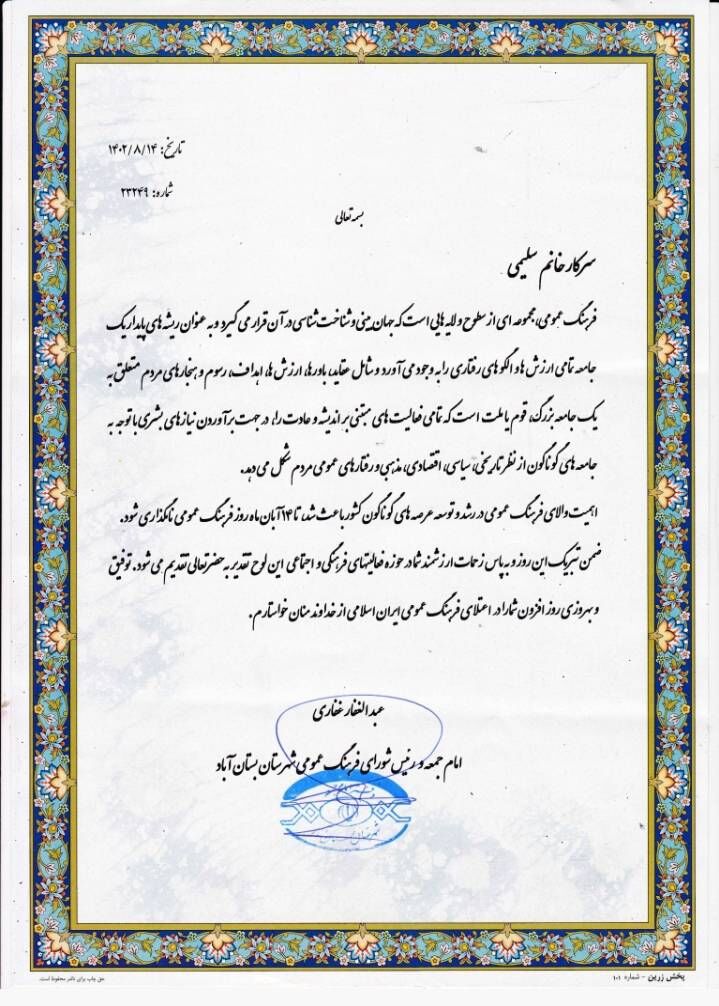 تاریخ: ۱۴۰۲/۸/۱۴
شماره: ۲۳۲۴۹
بسمه تعالی
سرکار خانم سلیمی
فرهنگ عمومی، مجموعه ای از سطوح و لایه هایی است که جهان بینی و شناخت شناسی در آن قرار می گیرد و به عنوان ریشه های پایدار یک
جامعه تمامی ارزش ها و الگوهای رفتاری را به وجود می آورد و شامل عقاید، باورها، ارزش ها، اهداف، رسوم و هنجارهای مردم متعلق به
یک جامعه بزرگ، قوم یا ملت است که تمامی فعالیت های مبتنی بر اندیشه و عادت را، در جهت برآوردن نیازهای بشری با توجه به
جامعه های گوناگون از نظر تاریخی، سیاسی، اقتصادی، مذهبی و رفتارهای عمومی مردم شکل می دهد.
اهمیت والای فرهنگ عمومی در رشد و توسعه عرصه های گوناگون کشور باعث شد، تا ۱۴ آبان ماه روز فرهنگ عمومی نامگذاری شود.
ضمن تبریک این روز و به پاس زحمات ارزشمند شما در حوزه فعالیتهای فرهنگی و اجتماعی این لوح تقدیر به حضرتعالی تقدیم می شود. توفیق
و بهروزی روز افزون شما را در اعتلای فرهنگ عمومی ایران اسلامی از خداوند منان خواستارم.
عبدالغفار غفاری
امام جمعه و رئیس شورای فرهنگ عمومی شهرستان بستان آباد
پخش زرین - شماره ۱۰۱
حق چاپ برای ناشر محفوظ است.